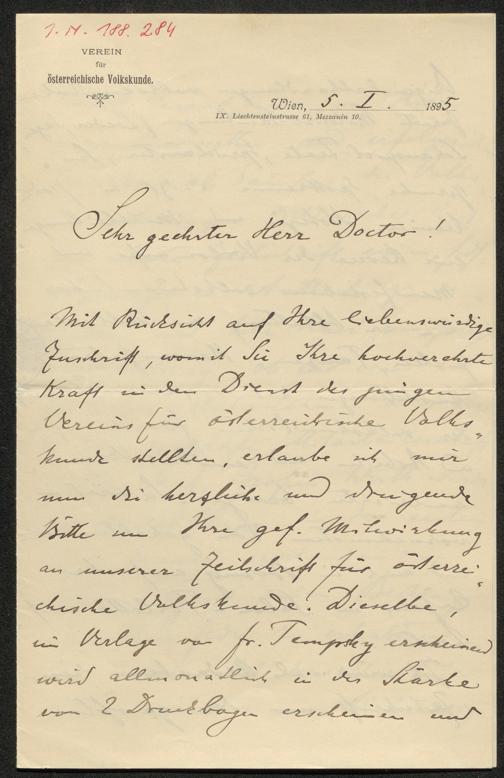 I. N. 188.284
VEREIN
für
österreichische Volkskunde.
Wien, 5. I. 1895
IX. Liechtensteinstrasse 61, Mezzanin 10.
Sehr geehrter Herr Doctor!
Mit Rücksicht auf Ihre liebenswürdige
Zuschrift, womit Sie Ihre hochverehrte
Kraft in den Dienst des jungen
Vereins für österreichische Volks-
kunde stellten, erlaube ich mir
nun die herzliche und dringende
Bitte um Ihre gef. Mitwirkung
an unserer Zeitschrift für österrei-
chische Volkskunde. Dieselbe,
im Verlage von Fr. Tempsky erscheinend
wird allmonatlich in der Stärke
von 2 Druckbogen erscheinen und